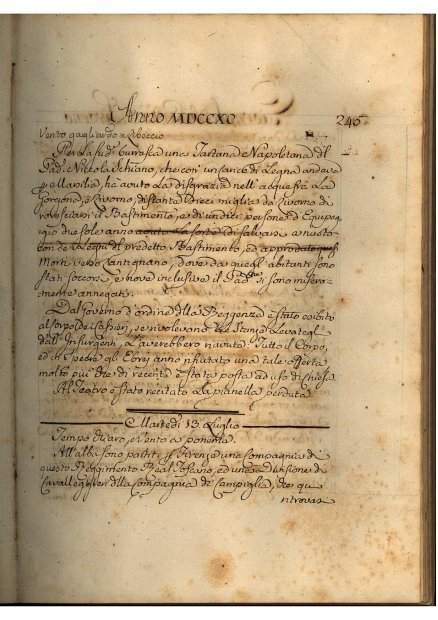 Anno MDCCXC
245
Vento gagliardo a Libeccio
Per la sud.ª burrasca una Tartana Napoletana del
Pad. Niccola Schiano, che con un carico di Legno andava
a Marsilia, ha avuto la disgrazia nell'acque fra La
Gorgona, e Livorno, distante dieci miglia da Livorno di
rovesciarsi il Bastimento, e di undici persone d'Equipag
gio due sole anno avuto la sorte di salvarsi
predetto Bastimento, ed
Morti verso Antignano, dove da quegl'abitanti sono
stati soccorsi e nove inclusive il Pad.ne si sono misera-
mente annegati.
Dal Governo d'ordine della Reggenza è stato esibito
al Corpo dei se rivolevano la Stanza levategl
dagl'Insurgenti, e L'averebbero riavuta. Tutto il Corpo,
ed in specie gli Ebrei anno rifiutato una tale offerta
molto più che di recente è stata posta ad uso di
Al Teatro è stato recitato La pianella perduta.
Martedì 13. Luglio
Tempo chiaro, e vento a ponente.
All'alba sono partiti p. Firenze una Compagnia di
questo Reggimento Real Toscano, ed una divisione di
Cavalleggieri della Compagnia di Campiglia, che qui
ritrovasi